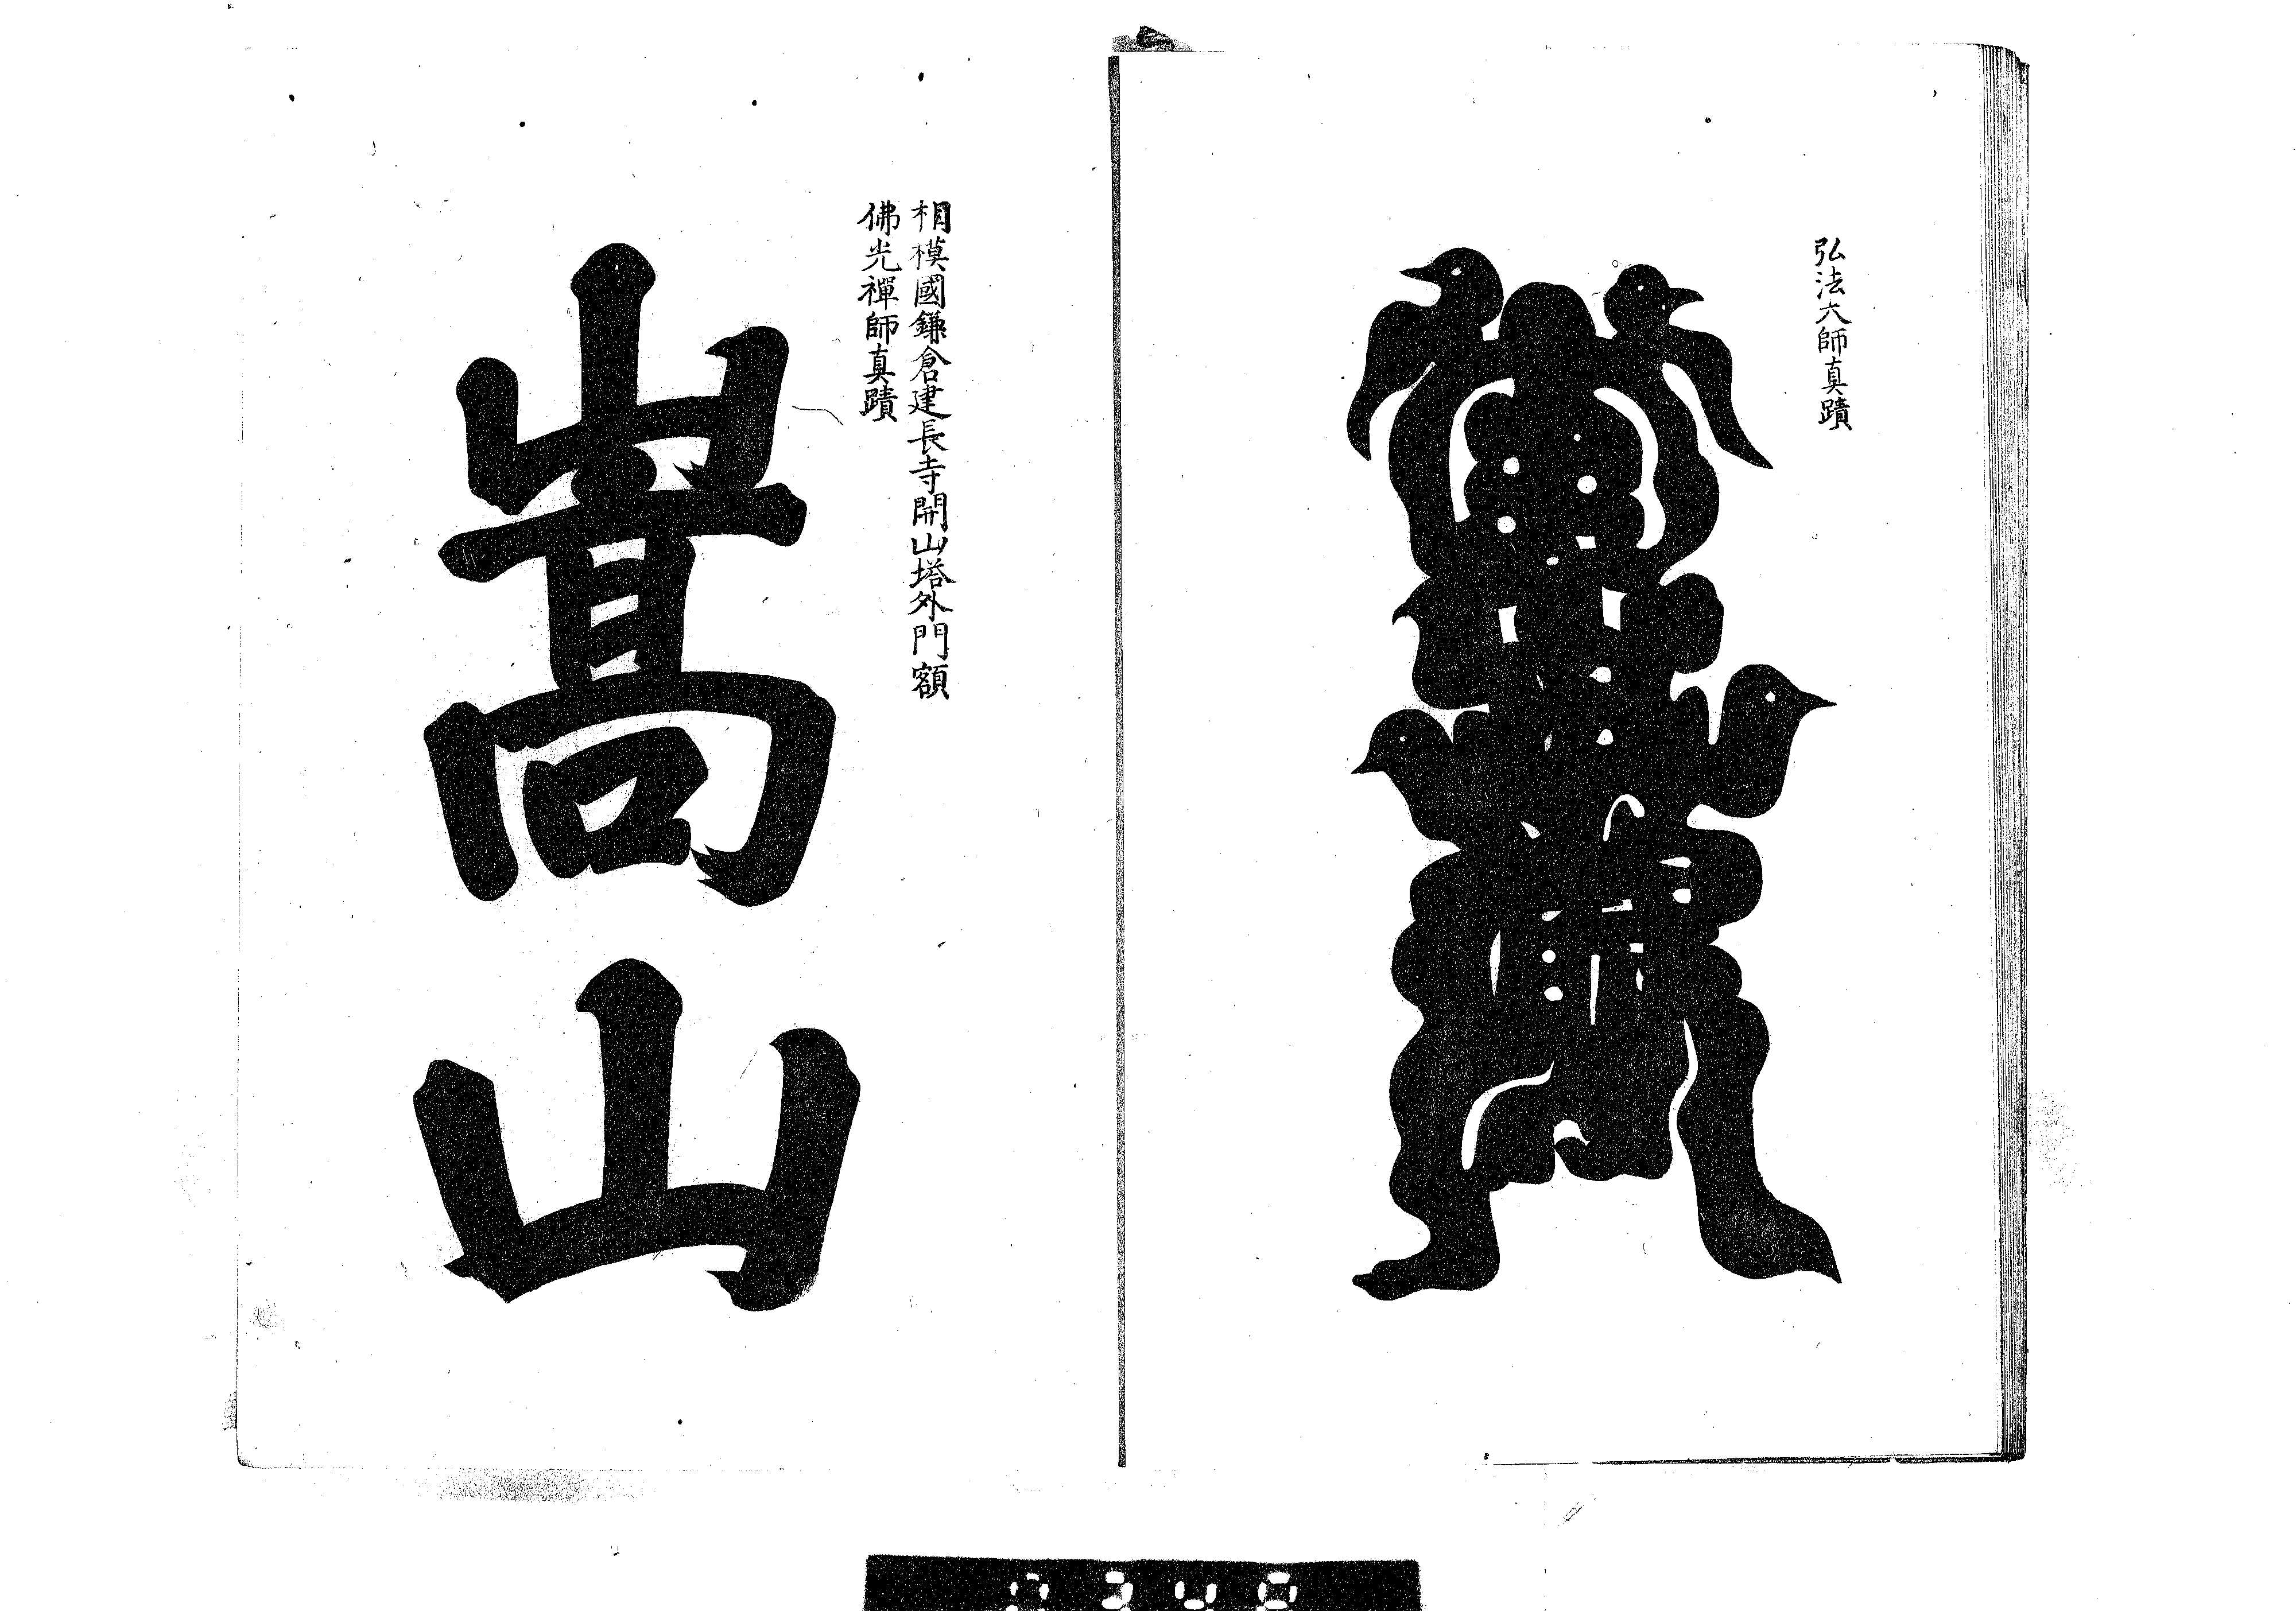 弘法大師真蹟
相模國鎌倉建長寺開山塔外門額
佛光禪師真蹟
嵩山